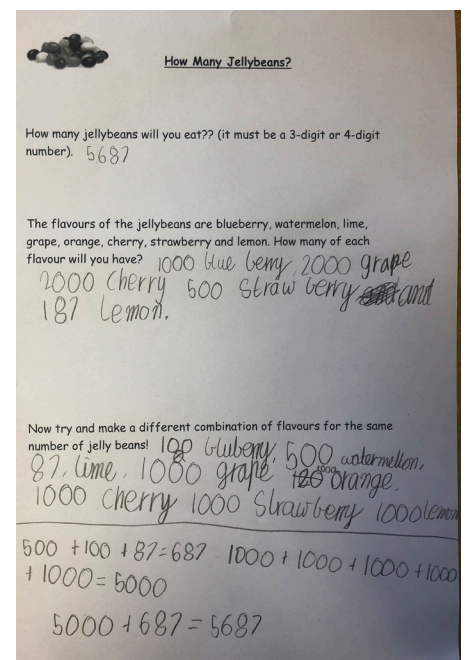 How Many Jellybeans?
How many jellybeans will you eat?? (it must be a 3-digit or 4-digit
number). 5687
The flavours of the jellybeans are blueberry, watermelon, lime,
grape, orange, cherry, strawberry and lemon. How many of each
flavour will you have? 1000 blue berry, 2000 grape
2000 cherry 500 straw berry and
187 Lemon.
Now try and make a different combination of flavours for the same
number of jelly beans! 100 bluberry, 500 watermellon,
87, lime, 1000 grape 1000 orange.
1000 cherry 1000 Strawberry 1000 lemon
500 + 100 + 87 = 687 1000 + 1000 + 1000 + 1000
+ 1000 = 5000
5000 + 687 = 5687